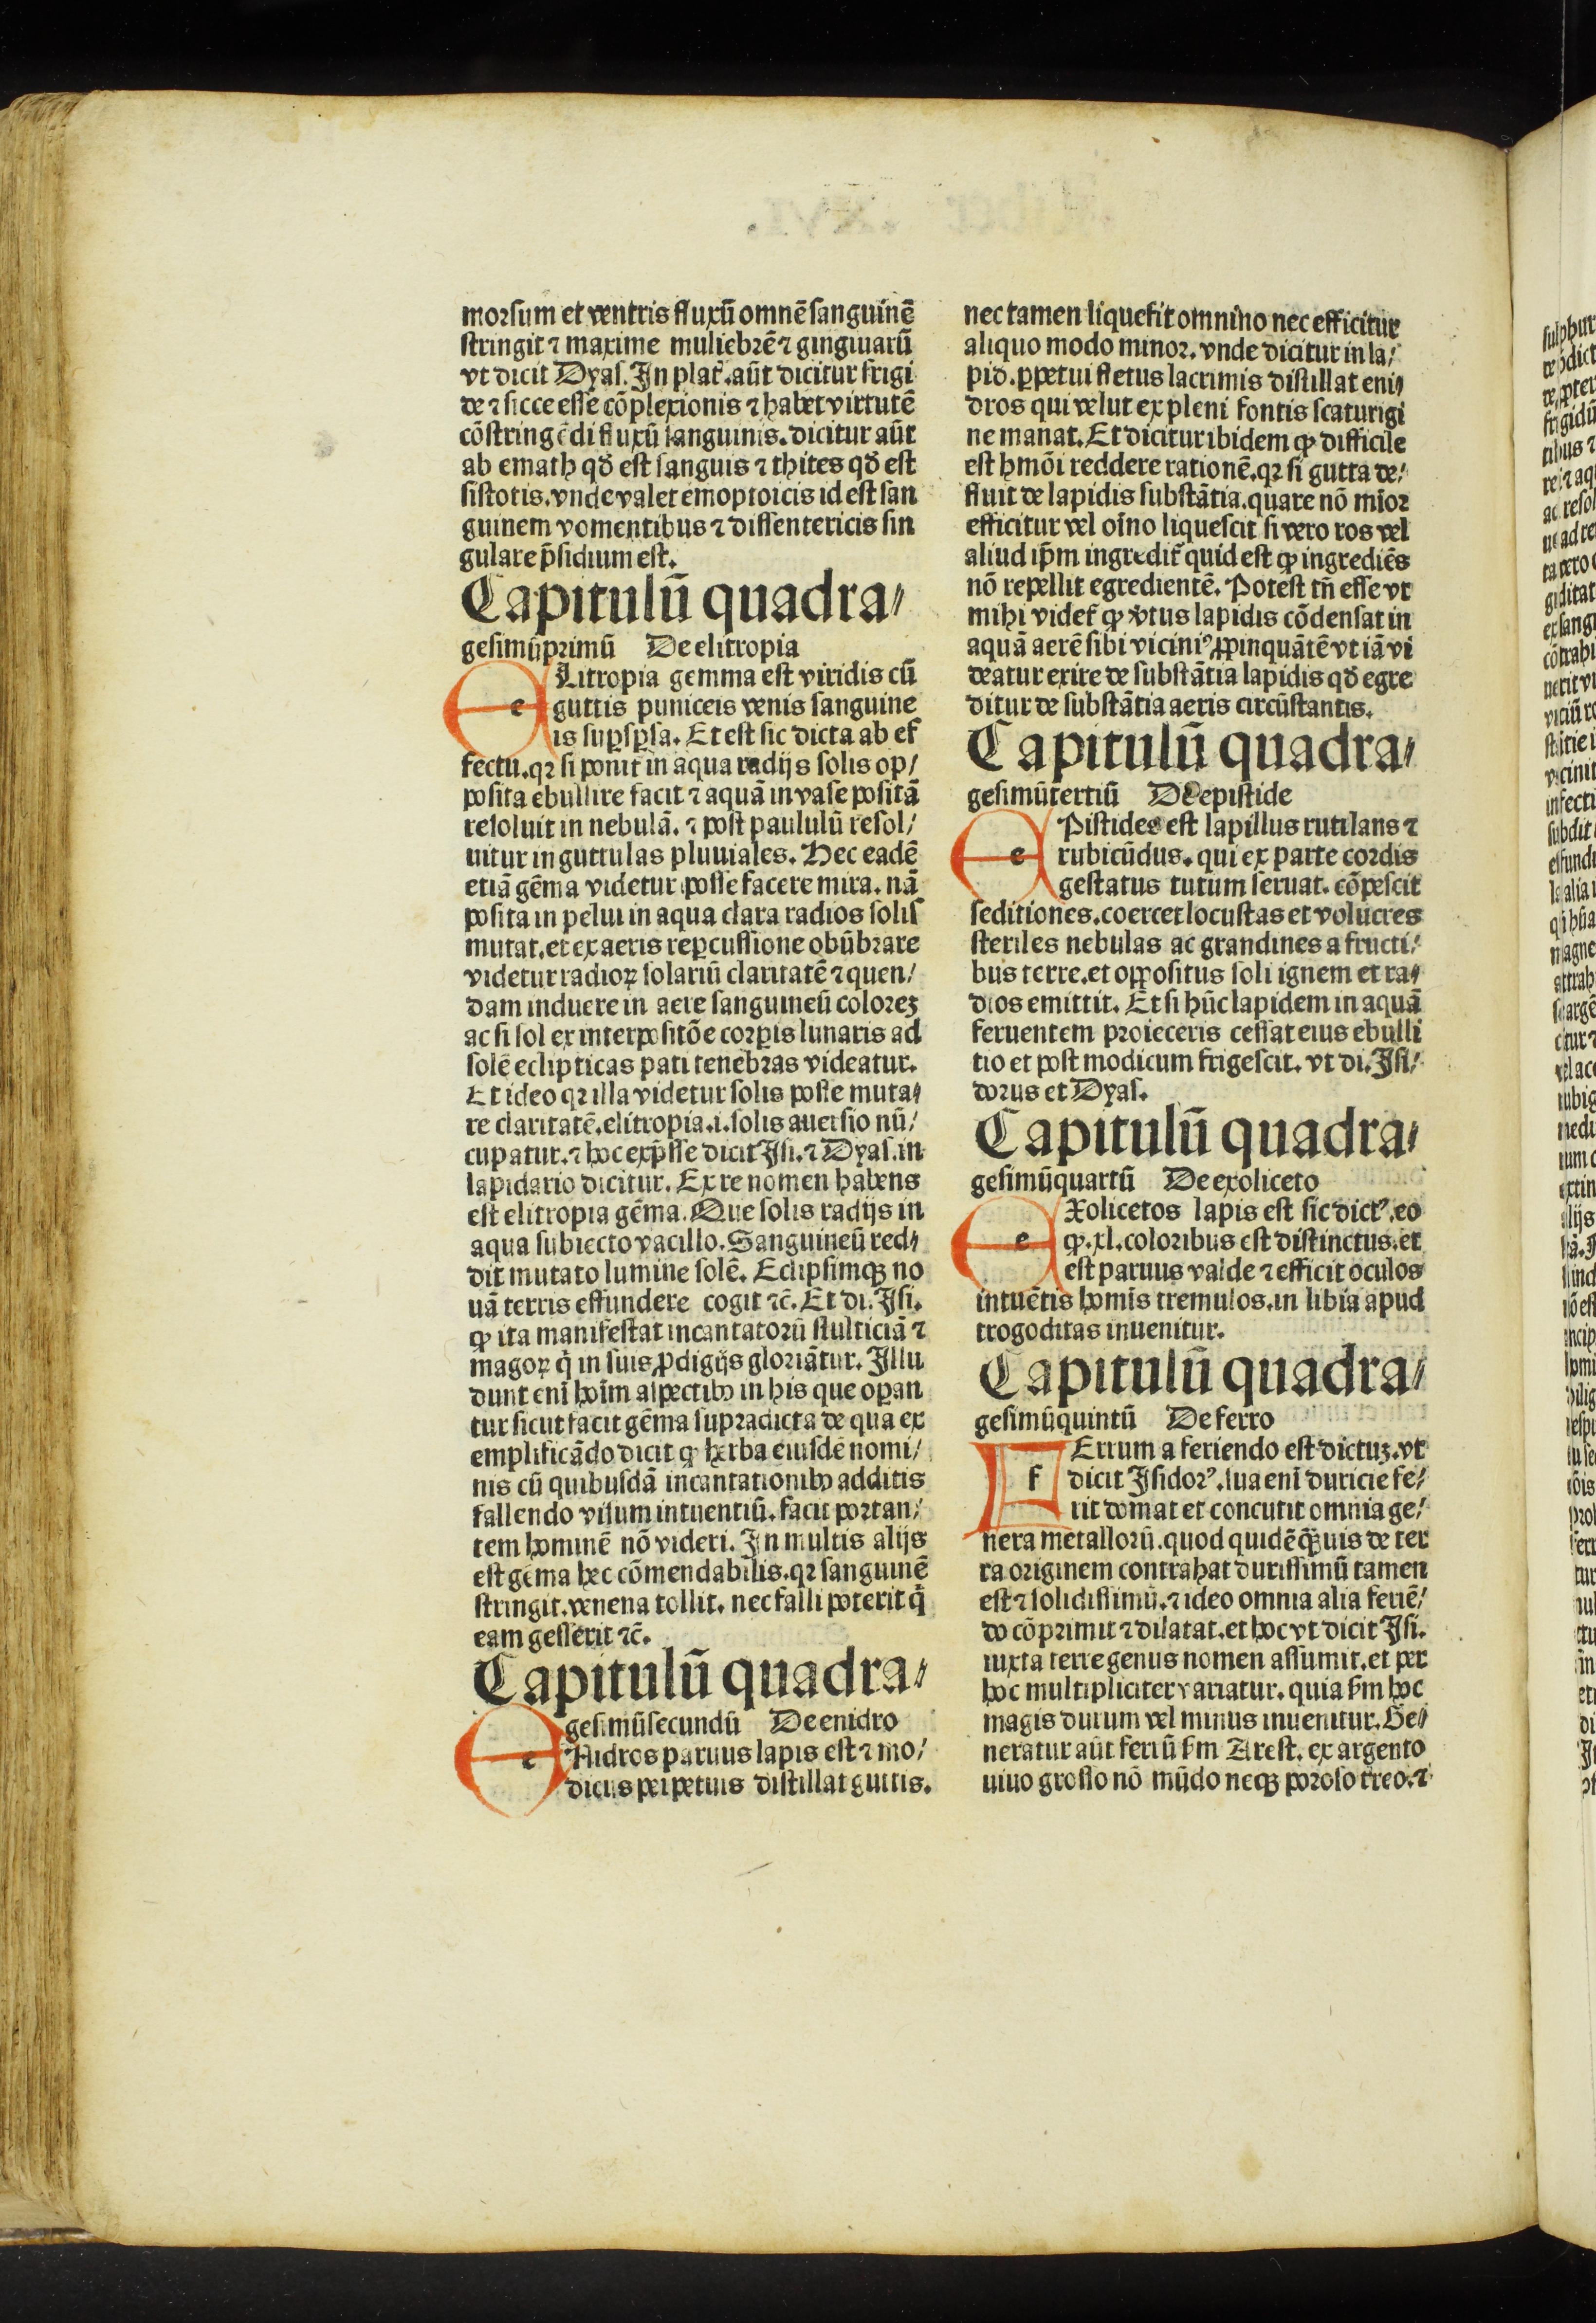 morsum et ventris fluxū omnē sanguinē
stringit ⁊ maxime muliebrē ⁊ gingiuarū
vt dicit Dyas. In plat̄. aūt dicitur frigi
de ⁊ sicce esse cōplexionis ⁊ habet virtutē
cōstringēdi fluxū sanguinis. dicitur aūt
ab emath qđ est sanguis ⁊ thites qđ est
sistotis. vnde valet emoptoicis id est san
guinem vomentibus ⁊ dissentericis sin
gulare p̄sidium est.
Capitulū quadra⸗
gesimūprimū De elitropia
eLitropia gemma est viridis cū
guttis puniceis venis sanguine
is suꝑsꝑsa. Et est sic dicta ab ef
fectu. qꝛ si ponit̄ in aqua radijs solis op/
posita ebullire facit ⁊ aquā in vase positā
resoluit in nebulā. ⁊ post paululū resol/
uitur in guttulas pluuiales. Hec eadē
etiā gēma videtur posse facere mira. nā
posita in pelui in aqua clara radios solis
mutat. et ex aeris reꝑcussione obūbrare
videtur radioꝝ solariū claritatē ⁊ quen/
dam inducere in aere sanguineū colorez
ac si sol ex interpositōe corꝑis lunaris ad
solē eclipticas pati tenebras videatur.
Et ideo qꝛ illa videtur solis posse muta⸗
re claritatē. elitropia .i. solis auersio nū/
cupatur. ⁊ hoc exp̄sse dicit Isi. ⁊ Dyas. in
lapidario dicitur. Ex re nomen habens
est elitropia gēma. Que solis radijs in
aqua subiecto vacillo. Sanguineū red⸗
dit mutato lumine solē. Eclipsimqꝫ no
uā terris effundere cogit ⁊c̄. Et di. Isi.
ꝙ ita manifestat incantatorū stulticiā ⁊
magoꝝ q̄ in suis ꝓdigijs gloriātur. Illu
dunt enī hoīm aspectibꝰ in his que oꝑan
tur sicut facit gēma supradicta de qua ex
emplificādo dicit ꝙ herba eiusdē nomi/
nis cū quibusdā incantationibꝰ additis
fallendo visum intuentiū. facit portan/
tem hominē nō videri. In multis alijs
est gēma hec cōmendabilis. qꝛ sanguinē
stringit. venena tollit. nec falli poterit q̄
eam gesserit ⁊c̄.
Capitulū quadra⸗
gesimūsecundū De enidro
eNidros paruus lapis est ⁊ mo/
dicus perpetuis distillat guttis.
nec tamen liquefit omnino nec efficitur
aliquo modo minor. vnde dicitur in la/
pid. ꝑpetui fletus lacrimis distillat eni⸗
dros qui velut ex pleni fontis scaturigi
ne manat. Et dicitur ibidem ꝙ difficile
est hmōi reddere rationē. qꝛ si gutta de/
fluit de lapidis substātia. quare nō mīor
efficitur vel oīno liquescit si vero ros vel
aliud ip̄m ingredit̄ quid est ꝙ ingrediēs
nō repellit egredientē. Potest tn̄ esse vt
mihi videt̄ ꝙ v̓tus lapidis cōdensat in
aquā aerē sibi viciniꝰ ꝓpinquātē vt iā vi
deatur exire de substātia lapidis qđ egre
ditur de substātia aeris circūstantis.
Capitulū quadra⸗
gesimūtertiū De epistide
ePistides est lapillus rutilans ⁊
rubicūdus. qui ex parte cordis
gestatus tutum seruat. cōpescit
seditiones. coercet locustas et volucres
steriles nebulas ac grandines a fructi/
bus terre. et oppositus soli ignem et ra⸗
dios emittit. Et si hūc lapidem in aquā
feruentem proieceris cessat eius ebulli
tio et post modicum frigescit. vt di. Isi/
dorus et Dyas.
Capitulū quadra⸗
gesimūquartū De exoliceto
eXolicetos lapis est sic dictꝰ. eo
ꝙ .xl. coloribus est distinctus. et
est paruus valde ⁊ efficit oculos
intuētis homīs tremulos. in libia apud
trogoditas inuenitur.
Capitulū quadra⸗
gesimūquintū De ferro
fErrum a feriendo est dictuꝫ. vt
dicit Isidorꝰ. sua enī duricie fe/
rit domat et concutit omnia ge/
nera metallorū. quod quidē q̄uis de ter
ra originem contrahat durissimū tamen
est ⁊ solidissimū. ⁊ ideo omnia alia feriē/
do cōprimit ⁊ dilatat. et hoc vt dicit Isi.
iuxta terre genus nomen assumit. et per
hoc multipliciter variatur. quia ẜm hoc
magis durum vel minus inuenitur. Ge⸗
neratur aūt ferrū ẜm Arest. ex argento
uiuo grosso nō mūdo neqꝫ poroso treo. ⁊